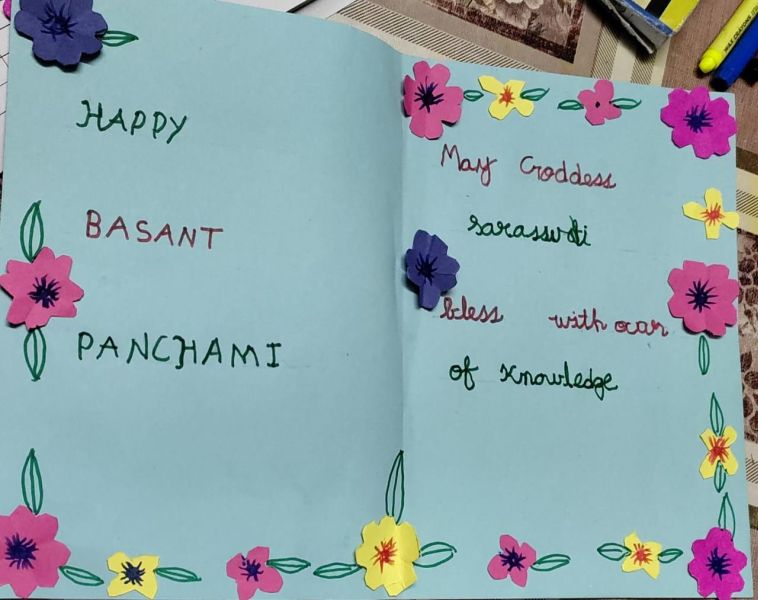 HAPPY
BASANT
PANCHAMI
May Goddess
sarasswati
bless with ocar
of knowledge